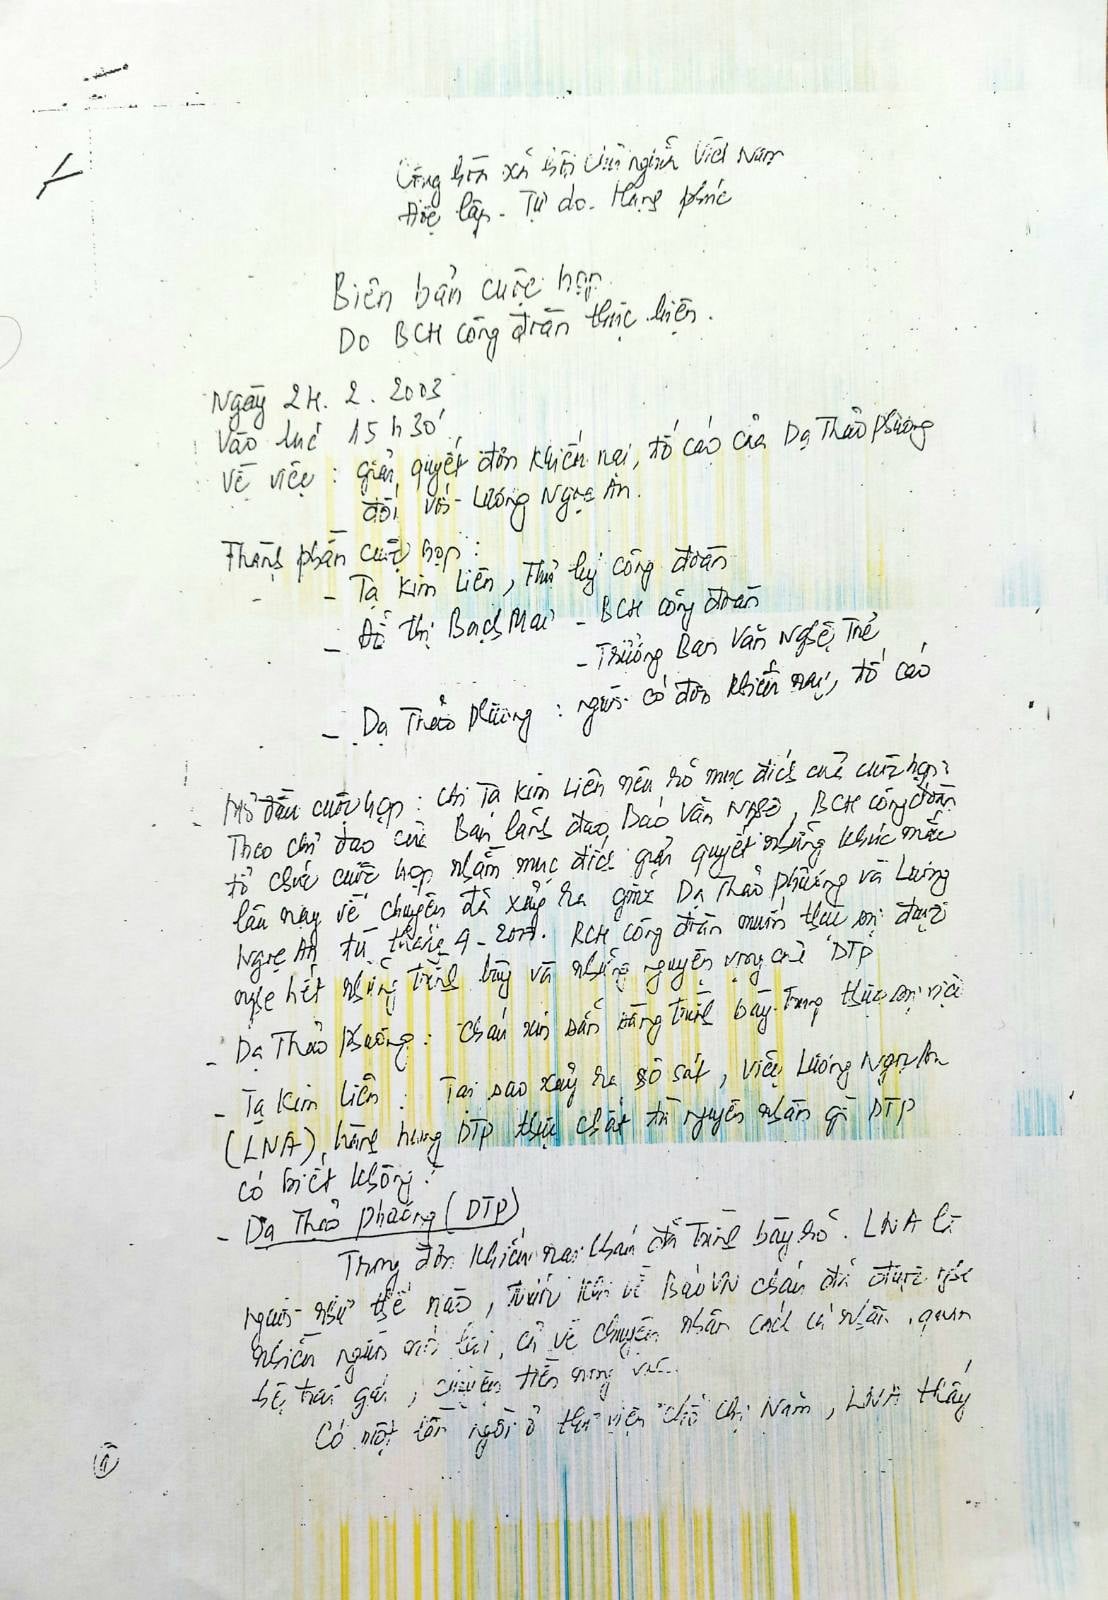 Cộng hòa xã hội chủ nghĩa Việt Nam
Độc lập - Tự do - Hạnh phúc
Biên bản cuộc họp
Do BCH công đoàn thực hiện.
Ngày 24. 2. 2003
Vào lúc 15h30'
Về việc: giải quyết đơn khiếu nại, tố cáo của Dạ Thảo Phương
đối với Lương Ngọc An.
Thành phần cuộc họp:
- Tạ Kim Liên, Thư ký công đoàn
- Đỗ Thị Bạch Mai - BCH công đoàn
- Trưởng Ban Văn Nghệ Trẻ
- Dạ Thảo Phương: người có đơn khiếu nại, tố cáo
Mở đầu cuộc họp: chị Tạ Kim Liên nêu rõ mục đích của cuộc họp:
Theo chỉ đạo của Ban lãnh đạo Báo Văn Nghệ, BCH công đoàn
tổ chức cuộc họp nhằm mục đích giải quyết những khúc mắc
lâu nay về chuyện đã xảy ra giữa Dạ Thảo Phương và Lương
Ngọc An từ tháng 4-2000. BCH công đoàn muốn thực sự được
nghe hết những trình bày và những nguyện vọng của DTP
- Dạ Thảo Phương: Cháu xin sẵn sàng trình bày trung thực sự việc
- Tạ Kim Liên: Tại sao xảy ra xô xát, việc Lương Ngọc An
(LNA) hành hung DTP thực chất từ nguyên nhân gì DTP
có biết không?
- Dạ Thảo Phương (DTP)
Trong đơn khiếu nại cháu đã trình bày rõ. LNA là
người như thế nào, trước khi về Báo VN cháu đã được
nhiều người nói lại, cả về chuyện nhân cách cá nhân, quan
hệ trai gái, chuyện tiền nong
Có một lần ngồi ở thư viện chỗ chị Nam, LNA thấy